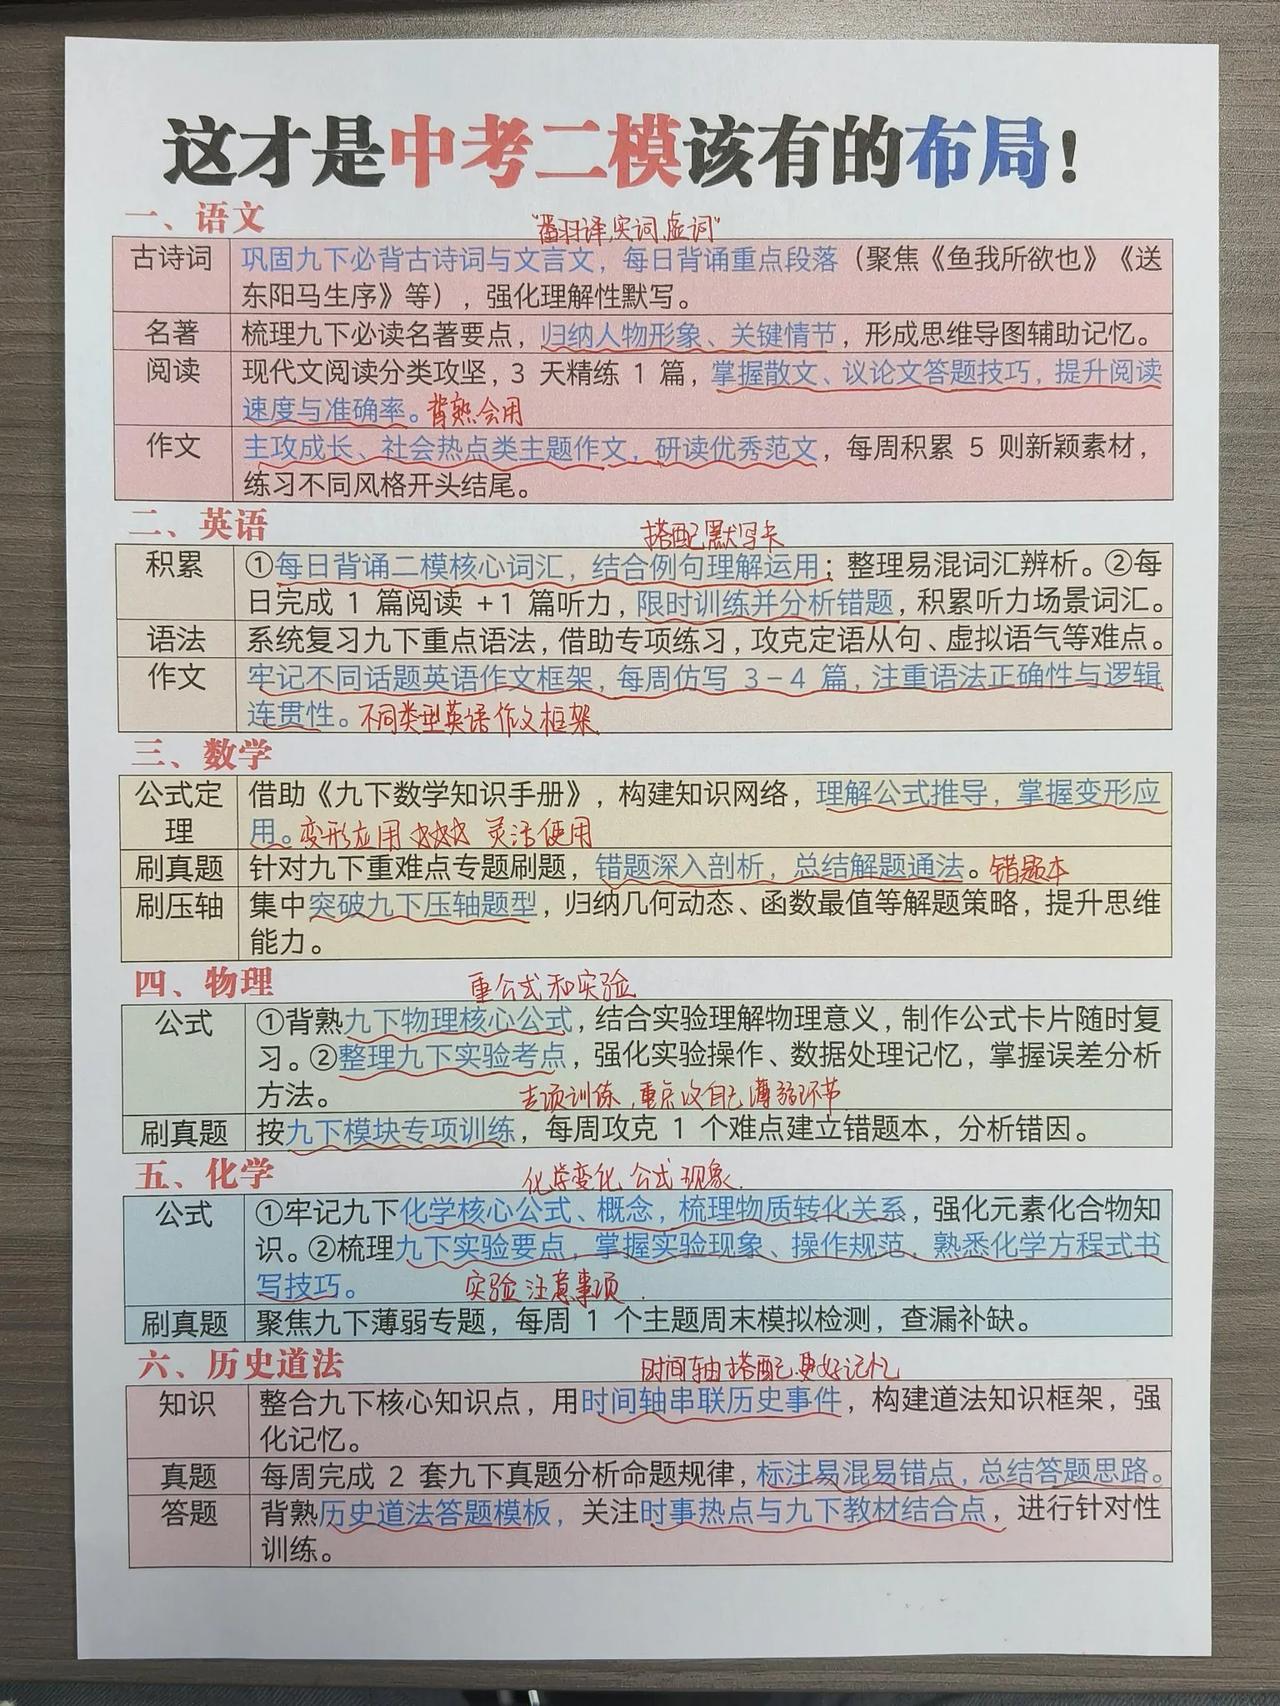 这才是中考二模该有的布局！
一、语文
"翻译,实词,虚词"
古诗词 巩固九下必背古诗词与文言文，每日背诵重点段落（聚焦《鱼我所欲也》《送
东阳马生序》等），强化理解性默写。
名著 梳理九下必读名著要点，归纳人物形象、关键情节，形成思维导图辅助记忆。
阅读 现代文阅读分类攻坚，3 天精练 1 篇，掌握散文、议论文答题技巧，提升阅读
速度与准确率。背熟会用
作文 主攻成长、社会热点类主题作文，研读优秀范文，每周积累 5 则新颖素材，
练习不同风格开头结尾。
二、英语
搭配默写卡
积累 ①每日背诵二模核心词汇，结合例句理解运用；整理易混词汇辨析。②每
日完成 1 篇阅读 +1 篇听力，限时训练并分析错题，积累听力场景词汇。
语法 系统复习九下重点语法，借助专项练习，攻克定语从句、虚拟语气等难点。
作文 牢记不同话题英语作文框架，每周仿写 3-4 篇，注重语法正确性与逻辑
连贯性。不同类型英语作文框架
三、数学
公式定 借助《九下数学知识手册》，构建知识网络，理解公式推导，掌握变形应
理 用。变形应用 ☆☆☆ 灵活使用
刷真题 针对九下重难点专题刷题，错题深入剖析，总结解题通法。错题本
刷压轴 集中突破九下压轴题型，归纳几何动态、函数最值等解题策略，提升思维
能力。
四、物理
重公式和实验
公式 ①背熟九下物理核心公式，结合实验理解物理意义，制作公式卡片随时复
习。②整理九下实验考点，强化实验操作、数据处理记忆，掌握误差分析
方法。 专项训练,重点攻自己薄弱环节
刷真题 按九下模块专项训练，每周攻克 1 个难点建立错题本，分析错因。
五、化学
化学变化 公式 现象.
公式 ①牢记九下化学核心公式、概念，梳理物质转化关系，强化元素化合物知
识。②梳理九下实验要点，掌握实验现象、操作规范，熟悉化学方程式书
写技巧。 实验注意事项.
刷真题 聚焦九下薄弱专题，每周 1 个主题周末模拟检测，查漏补缺。
六、历史道法
时间轴搭配更好记忆
知识 整合九下核心知识点，用时间轴串联历史事件，构建道法知识框架，强
化记忆。
真题 每周完成 2 套九下真题分析命题规律，标注易混易错点，总结答题思路。
答题 背熟历史道法答题模板，关注时事热点与九下教材结合点，进行针对性
训练。